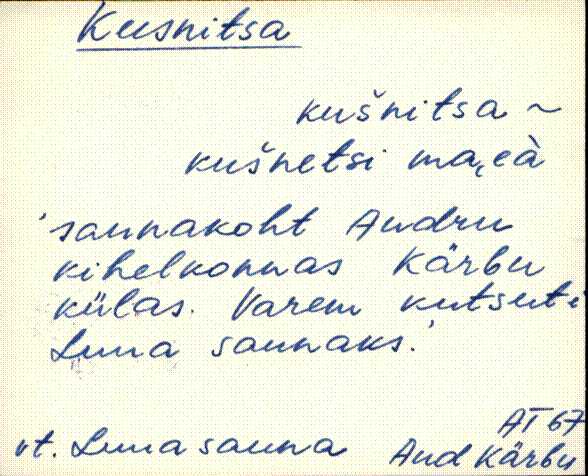 Kusnitsa
kušnitsa ~
kušnetsi ma,eà
'saunakoht Audru
kihelkonnas Kärbu
külas. Varem kutsuti
Luua saunaks.'
vt. Luua sauna
AT 67
Aud Kärbu